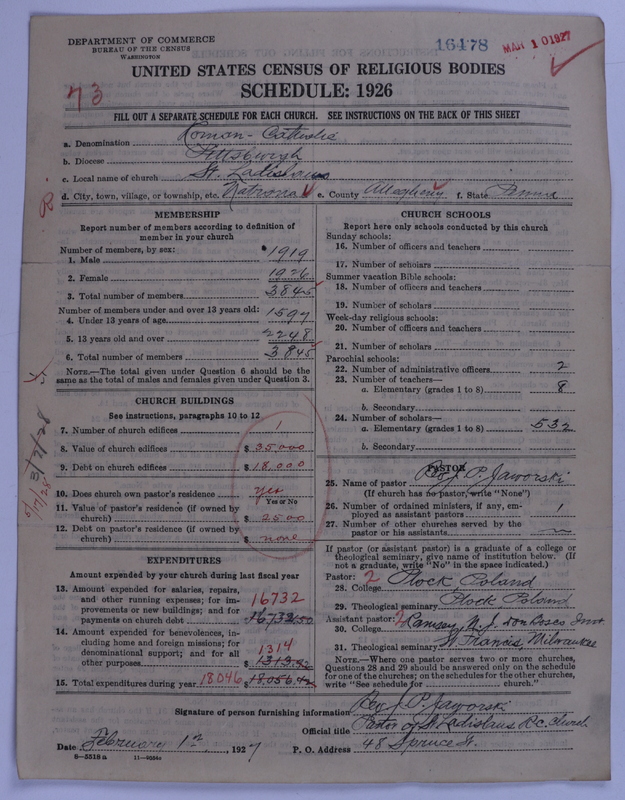 DEPARTMENT OF COMMERCE
BUREAU OF THE CENSUS
WASHINGTON
16478
MAR 10 1927
UNITED STATES CENSUS OF RELIGIOUS BODIES
SCHEDULE: 1926
73
FILL OUT A SEPARATE SCHEDULE FOR EACH CHURCH. SEE INSTRUCTIONS ON THE BACK OF THIS SHEET
a. Denomination Roman-Catholic
b. Diocese Pittsburgh
c. Local name of church St. Ladislaus
d. City, town, village, or township, etc. Natrona e. County Allegheny f. State Penna
MEMBERSHIP
Report number of members according to definition of
member in your church
Number of members, by sex:
1. Male 1919
2. Female 1926
3. Total number of members 3845
Number of members under and over 13 years old:
4. Under 13 years of age 1597
5. 13 years old and over 2248
6. Total number of members 3845
NOTE.—The total given under Question 6 should be the
same as the total of males and females given under Question 3.
CHURCH BUILDINGS
See instructions, paragraphs 10 to 12
7. Number of church edifices 1
8. Value of church edifices $ 35,000
9. Debt on church edifices $ 18,000
10. Does church own pastor's residence yes
Yes or No
11. Value of pastor's residence (if owned by
church) $ 2500
12. Debt on pastor's residence (if owned by
church) $ none
5/17/28 3/2/28
EXPENDITURES
Amount expended by your church during last fiscal year
13. Amount expended for salaries, repairs,
and other running expenses; for im-
provements or new buildings; and for
payments on church debt 16732
16732.50
14. Amount expended for benevolences, in-
cluding home and foreign missions; for
denominational support; and for all
other purposes 1314
1313.92
15. Total expenditures during year 18046 $ 18056.42
CHURCH SCHOOLS
Report here only schools conducted by this church
Sunday schools:
16. Number of officers and teachers
17. Number of scholars
Summer vacation Bible schools:
18. Number of officers and teachers
19. Number of scholars
Week-day religious schools:
20. Number of officers and teachers
21. Number of scholars
Parochial schools:
22. Number of administrative officers 2
23. Number of teachers—
a. Elementary (grades 1 to 8) 8
b. Secondary
24. Number of scholars—
a. Elementary (grades 1 to 8) 532
b. Secondary
PASTOR
25. Name of pastor Rev. J. P. Jaworski
(If church has no pastor, write "None")
26. Number of ordained ministers, if any, em-
ployed as assistant pastors 1
27. Number of other churches served by the
pastor or his assistants
If pastor (or assistant pastor) is a graduate of a college or
theological seminary, give name of institution below. (If
not a graduate, write "No" in the space indicated.)
Pastor: 2
28. College Plock, Poland
29. Theological seminary Plock Poland
Assistant pastor: 2
30. College Ramsey, N. J. Don Bosco Inst.
31. Theological seminary St Francis, Milwaukee
NOTE.—Where one pastor serves two or more churches,
Questions 28 and 29 should be answered only on the schedule
for one of the churches; on the schedules for the other churches,
write "See schedule for church."
Signature of person furnishing information Rev. J. P. Jaworski
Official title Pastor of St Ladislaus R.C. Church
Date February 1st, 1927 P. O. Address 48 Spruce St.
8—5318a 11—9586a